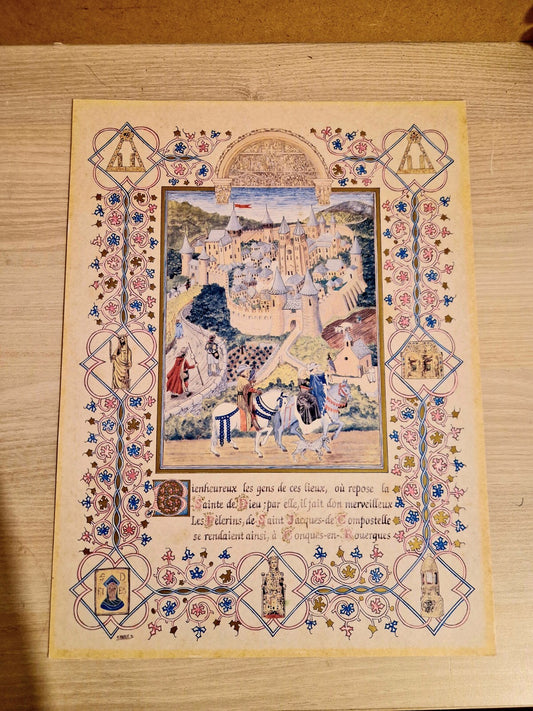 Bienheureux les gens de ces lieux, où repose la
Sainte de Dieu ; par elle, il jait don merveilleux
Les Pèlerins, de Saint Jacques-de Compostelle
se rendaient ainsi, à Conques-en-Rouergues